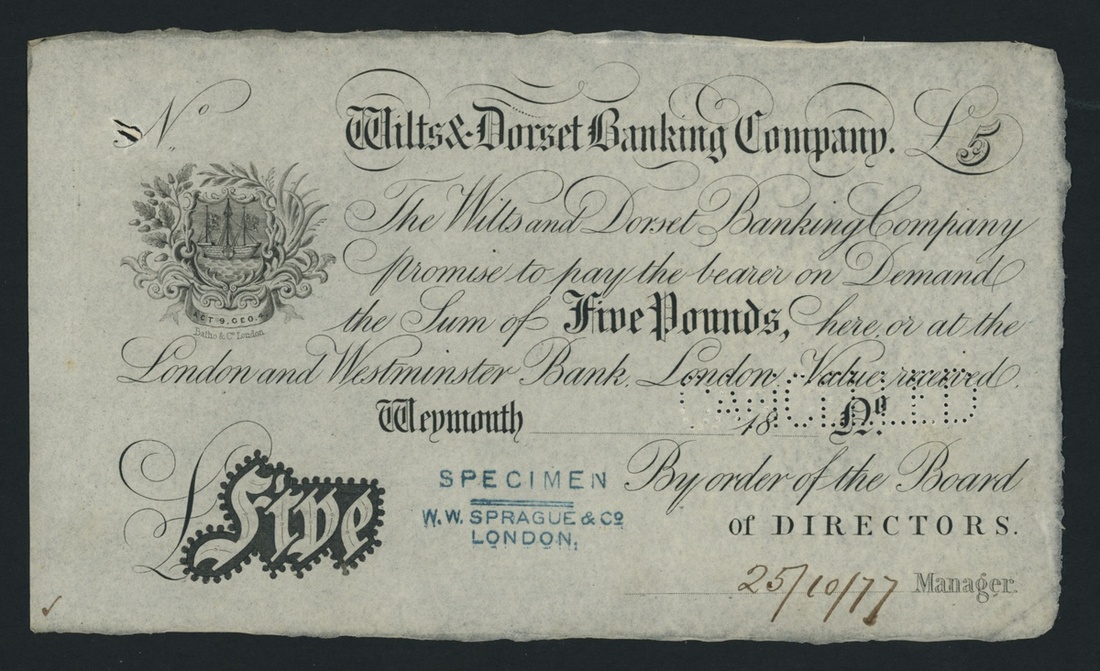 No
Wilts & Dorset Banking Company. £5
The Wilts and Dorset Banking Company
promise to pay the bearer on Demand
the Sum of Five Pounds, here, or at the
ACT 9. GEO. 4
Batho & Co. London
London and Westminster Bank. London. Value received.
CANCELLED
Weymouth 18 No.
£Five
SPECIMEN
W.W. SPRAGUE & Co
LONDON.
By order of the Board
of DIRECTORS.
25/10/77 Manager.